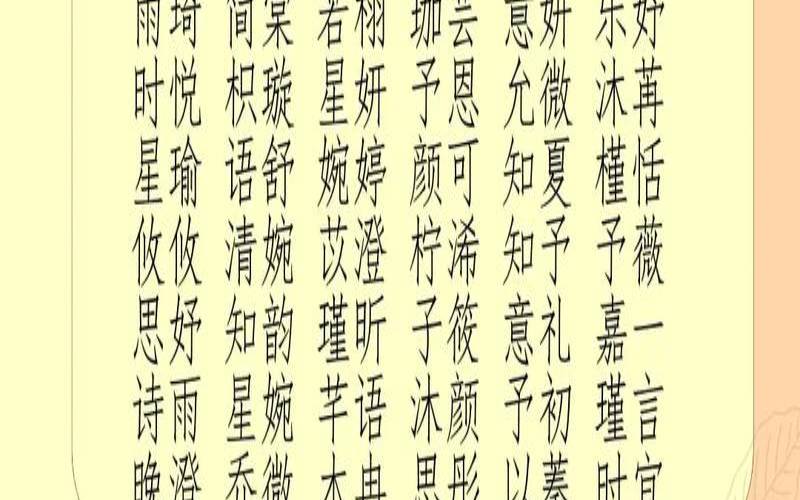 雨琦 简棠 若栩 珈芸 意妍 乐妤
时悦 枳璇 星妍 予恩 允微 沐苒
星瑜 语舒 婉婷 颜可 知夏 槿恬
攸攸 清婉 苡澄 柠浠 知予 予薇
思妤 知韵 瑾昕 子筱 意礼 嘉一
诗雨 星婉 芊语 沐颜 予初 瑾言
晚澄 乔微 木冉 思彤 以蓁 时宜